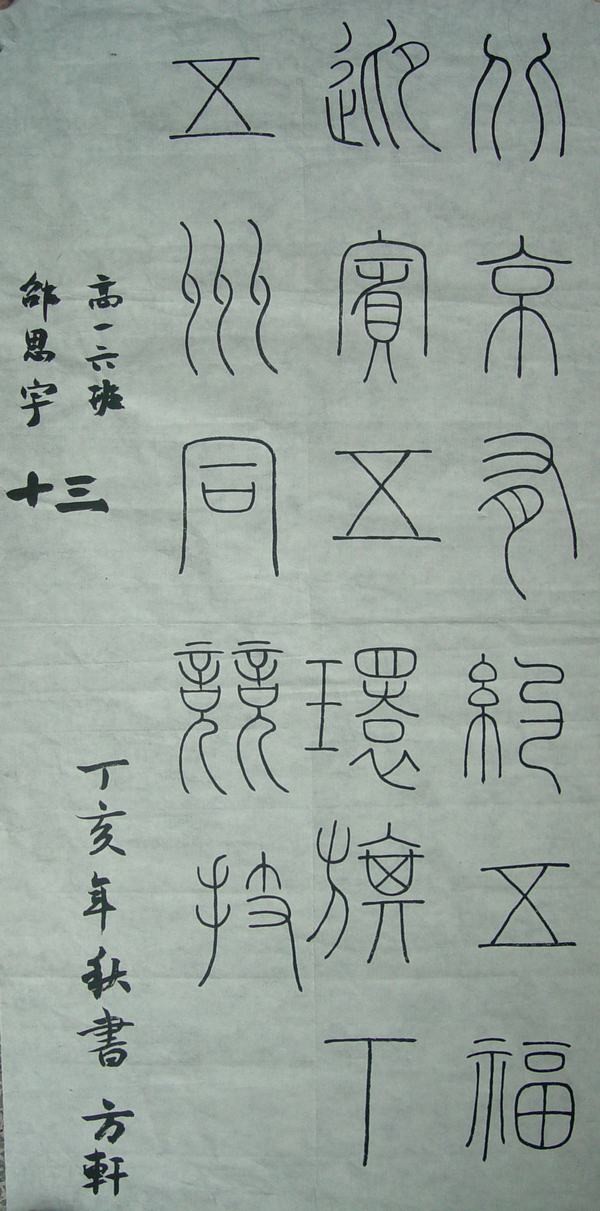 北京有約五福
迎賓五環旗下
五州同競技
高一六班
邵思宇
十三
丁亥年秋書 方軒